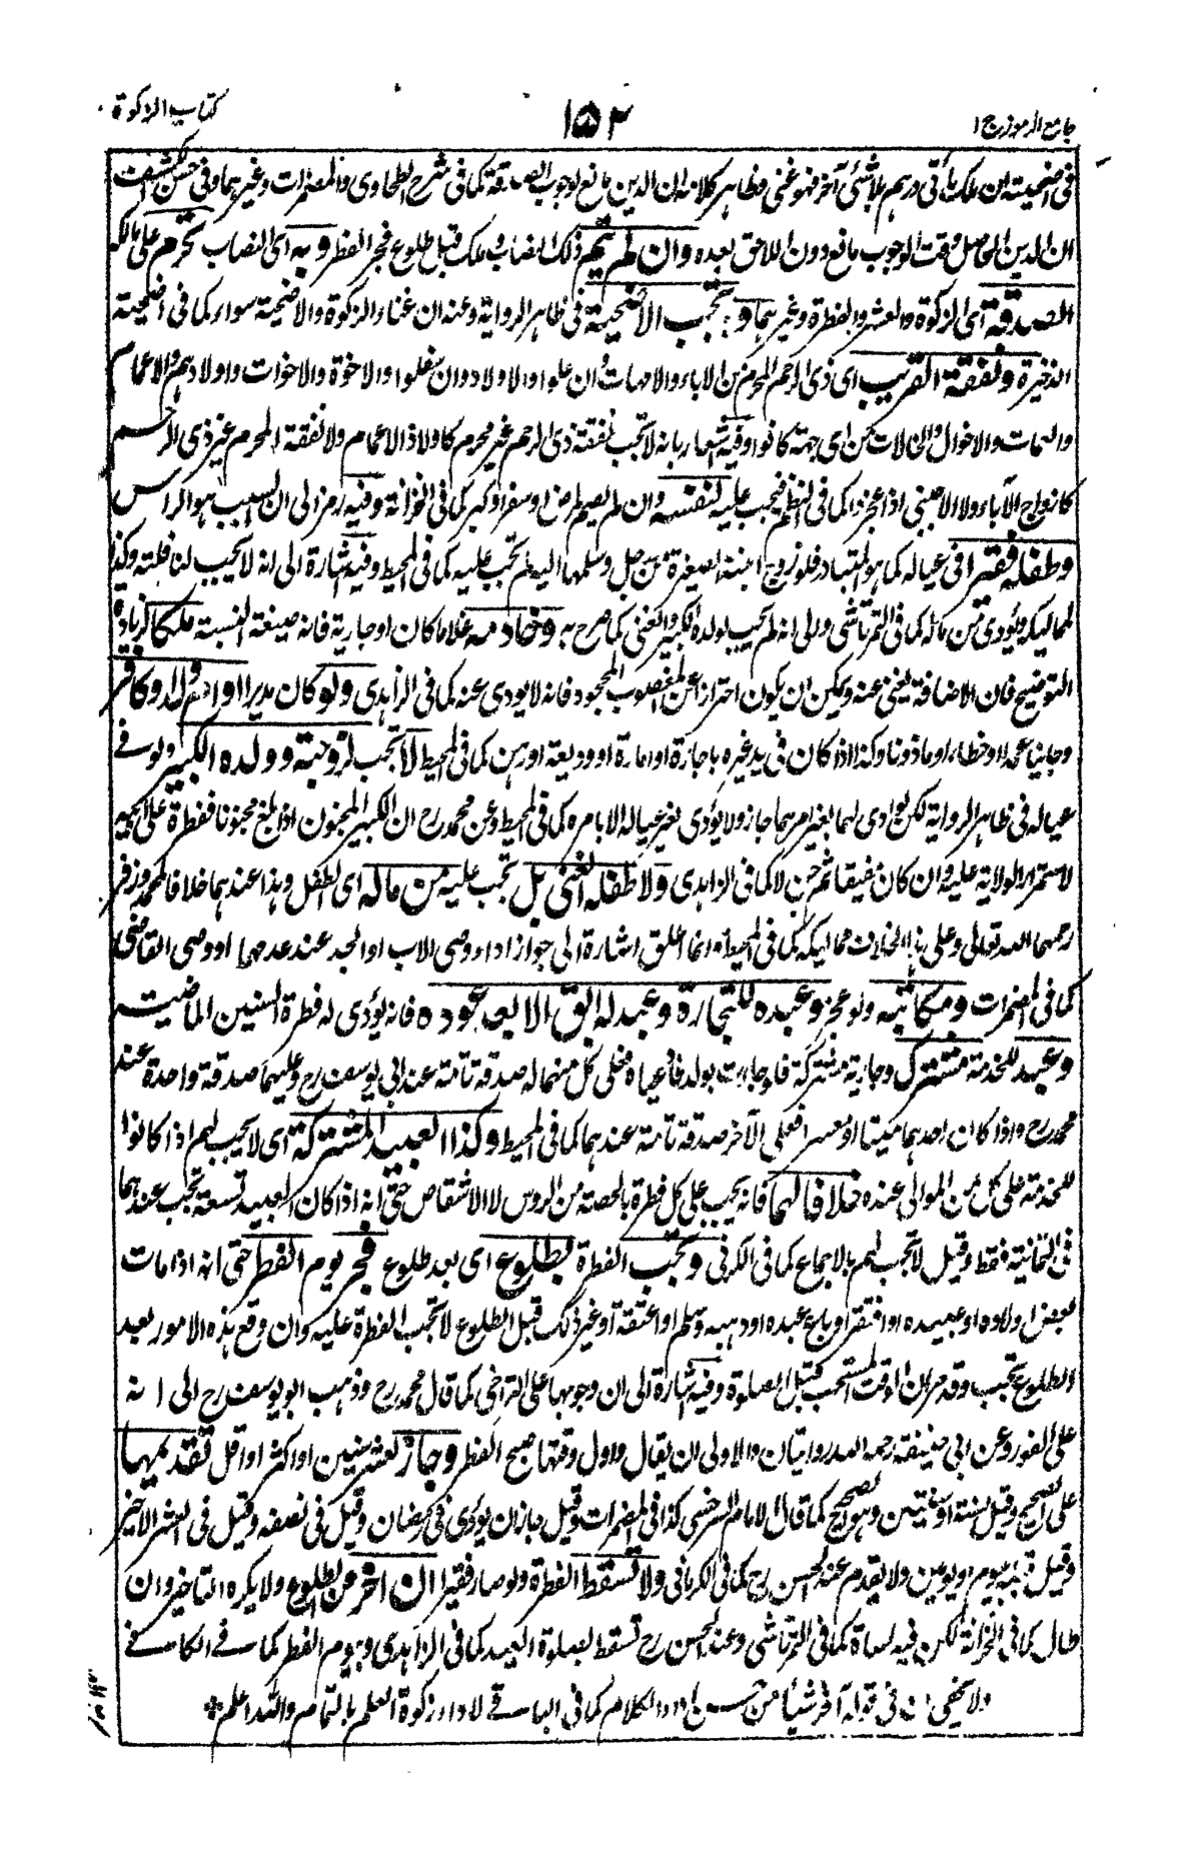 جامع الرموز ج ۱
۱۵۲
كتاب الزكوة
فى اضحيته ان ملك مأتى درهم بلا شئ آخر فهو غنى وظاهر كلامه ان الدين مانع لوجوب الصدقة كما فى شرح الطحاوى والمضمرات وغيرهما وفى الكشف
ان الدين الحاصل وقت الوجوب مانع دون اللاحق بعده وان لم ينم ذلك النصاب وملك قبيل طلوع فجر الفطر وبه اى النصاب تحرم على مالكه
الصدقة اى الزكوة والعشر والفطرة وغيرهما و تجب الاضحية فى ظاهر الرواية وعنه ان غناء الزكوة والاضحية سواء كما فى اضحية
الذخيرة ونفقة القريب اى ذى الرحم المحرم من الاباء والامهات وان علوا والاولاد وان سفلوا والاخوة والاخوات واولادهم والاعمام
والعمات والاخوال والخالات من اى جهة كانوا وفيه اشعار بانه لا تجب نفقة ذى الرحم غير محرم كاولاد الاعمام ولا نفقة المحرم غير ذى الرحم
كازواج الآباء ولا الاجنبى اذا عجز كما فى النظم فيجب عليه لنفسه وان لم يصم لمرض او سفر او كبر كما فى الخزانة وفيه رمز الى ان السبب هو الراس
وطفله فقيرا فى عياله كما هو المتبادر فلو زوج ابنته الصغيرة من رجل وسلمها اليه لم تجب عليه كما فى المحيط وفيه اشارة الى انه لا يجب لنافلته وكذا
لمماليكه ويؤدى من ماله كما فى التمرتاشى والى انه لم يجب لولده الكبير والغنى كما صرح به وخادمه غلاما كان او جارية فانه صيغة النسبة ملكا لزيادة
التوضيح فان الاضافة يغنى عنه ويمكن ان يكون احترازا عن المغصوب المجحود فانه لا يودى عنه كما فى الزاهدى ولو كان مدبرا او ام ولد او كافر
وجانيا عمدا او خطاء او ماذونا وكذا اذا كان فى يد غيره باجارة او اعارة او وديعة او رهن كما فى المحيط لا تجب لزوجته وولده الكبير ولو فى
عياله فى ظاهر الرواية لكن لو ادى لهما بغير امرهما جاز ولا يؤدى لغير عياله الا بامره كما فى المحيط وعن محمد رح ان الكبير المجنون اذا بلغ مجنونا ففطرة على ابيه
لاستمرار الولاية عليه وان كان مفيقا ثم جن لا كما فى الزاهدى ولا طفله الغنى بل تجب عليه من ماله اى الطفل وهذا عندهما خلافا لمحمد وزفر
رحمهما الله تعالى وعلى هذا الخلاف مماليكه كما فى المحيط وانما اطلق اشارة الى جواز اداء وصى الاب او الجد عند عدمهما او وصى القاضى
كما فى المضمرات ومكاتبه ولو عجز وعبده للتجارة وعبد له ابق الا بعد عوده فانه يؤدى له فطرة السنين الماضية
وعبد للخدمة مشترك وجارية مشتركة فلو جاءت بولد فادعياه فعلى كل منهما له صدقة تامة عند ابى يوسف رح وعليهما صدقة واحدة عند
محمد رح واذا كان احدهما ميتا او معسرا فعلى الآخر صدقة تامة عندهما كما فى المحيط وكذا العبيد المشتركة اى لا يجب لهم اذا كانوا
للخدمة على كل من الموالى عنده خلافا لهما فانه يجب على كل فطرة بالحصة من الروس لا الاشقاص حتى انه اذا كان العبيد تسعة تجب عندهما
فى الثمانية فقط وقيل لا تجب لهم بالاجماع كما فى الكرمانى وتجب الفطرة بطلوع اى بعد طلوع فجر يوم الفطر حتى انه اذا مات
بعض اولاده او عبيده او افتقر او باع عبده او وهبه وسلم او اعتقه او غير ذلك قبل الطلوع لا تجب الفطرة عليه وان وقع هذه الامور بعد
الطلوع تجب وقد مر ان الوقت المستحب قبل الصلوة وفيه اشارة الى ان وجوبها على التراخى كما قال محمد رح وذهب ابو يوسف رح الى انه
على الفور وعن ابى حنيفة رحمه الله روايتان والاولى ان يقال واول وقتها صبح الفطر وجاز لعشر سنين او اكثر او اقل تقديمها
على الصحيح وقيل لسنة او سنتين وهو الصحيح كما قال الامام السرخسى كذا فى المضمرات وقيل جاز ان يؤدى فى رمضان وقيل فى نصفه وقيل فى العشر الاخير
وقيل قبله بيوم او يومين ولا يقدم عند الحسن رح كما فى الكرمانى ولا تسقط الفطرة ولو صار فقيرا ان اخر من الطلوع ولا يكره التاخير وان
طال كما فى الخزانة لكن فيه اساءة كما فى التمرتاشى وعند الحسن رح تسقط بصلوة العيد كما فى الزاهدى وبيوم الفطر كما فى الكافى
ولا يخفى ان فى قوله آخر شيأ من حسن الكلام كما فى الباقى لاداء زكوة العلم بالتمام والله اعلم